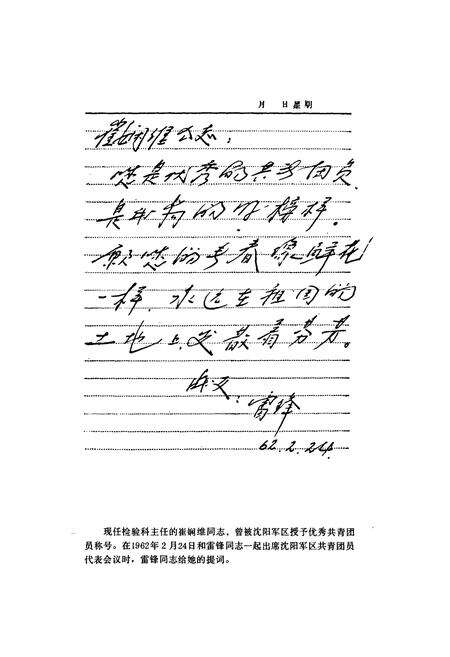 月 日 星期
崔娴维同志：
您是优秀的共青团员
是我们的好榜样。
愿您的青春像鲜花
一样，永远在祖国的
土地上发散着芬芳。
战友：
雷锋
62.2.24.
现任检验科主任的崔娴维同志，曾被沈阳军区授予优秀共青团
员称号。在1962年2月24日和雷锋同志一起出席沈阳军区共青团员
代表会议时，雷锋同志给她的提词。